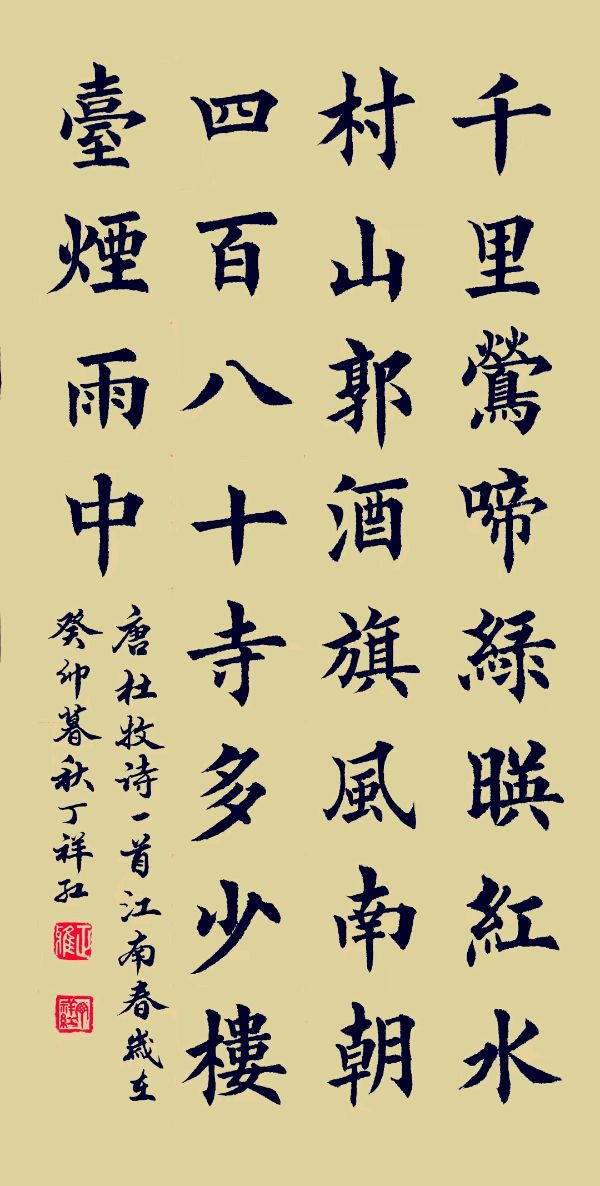 千里鶯啼綠暎紅水
村山郭酒旗風南朝
四百八十寺多少樓
臺煙雨中
唐杜牧诗一首江南春歲在
癸卯暮秋丁祥红